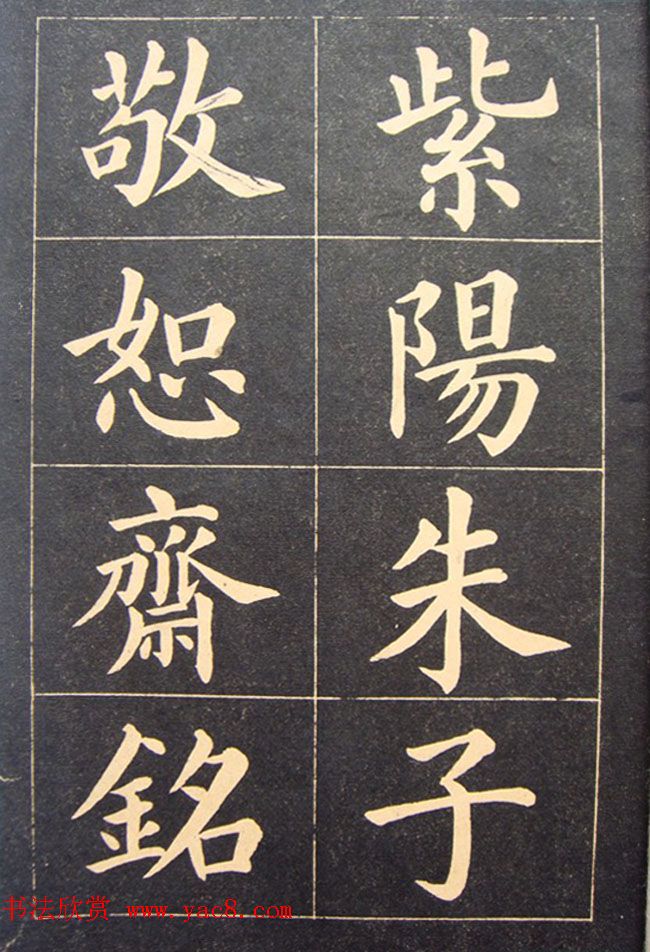 紫陽朱子
敬恕齋銘
书法欣赏 www.yac8.com